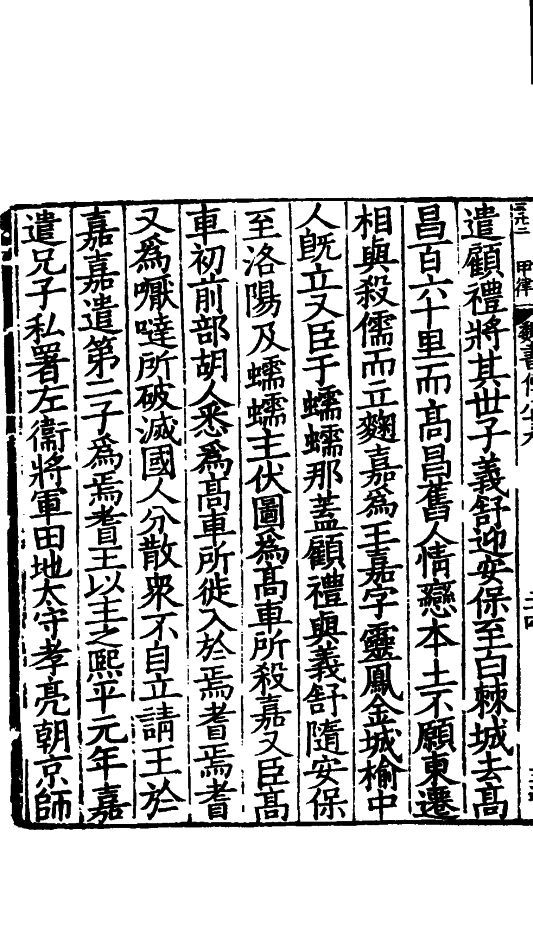 魏書傳
遣顧禮將其世子義舒迎安保至白棘城去高
昌百六十里而高昌舊人情戀本土不願東遷
相與殺儒而立麴嘉爲王嘉字靈鳳金城榆中
人既立又臣于蠕蠕那蓋顧禮與義舒隨安保
至洛陽及蠕蠕主伏圖爲高車所殺嘉又臣高
車初前部胡人悉爲高車所徙入於焉耆焉耆
又爲嚈噠所破滅國人分散衆不自立請王於
嘉嘉遣第二子爲焉耆王以主之熙平元年嘉
遣兄子私署左衞將軍田地太守孝亮朝京師